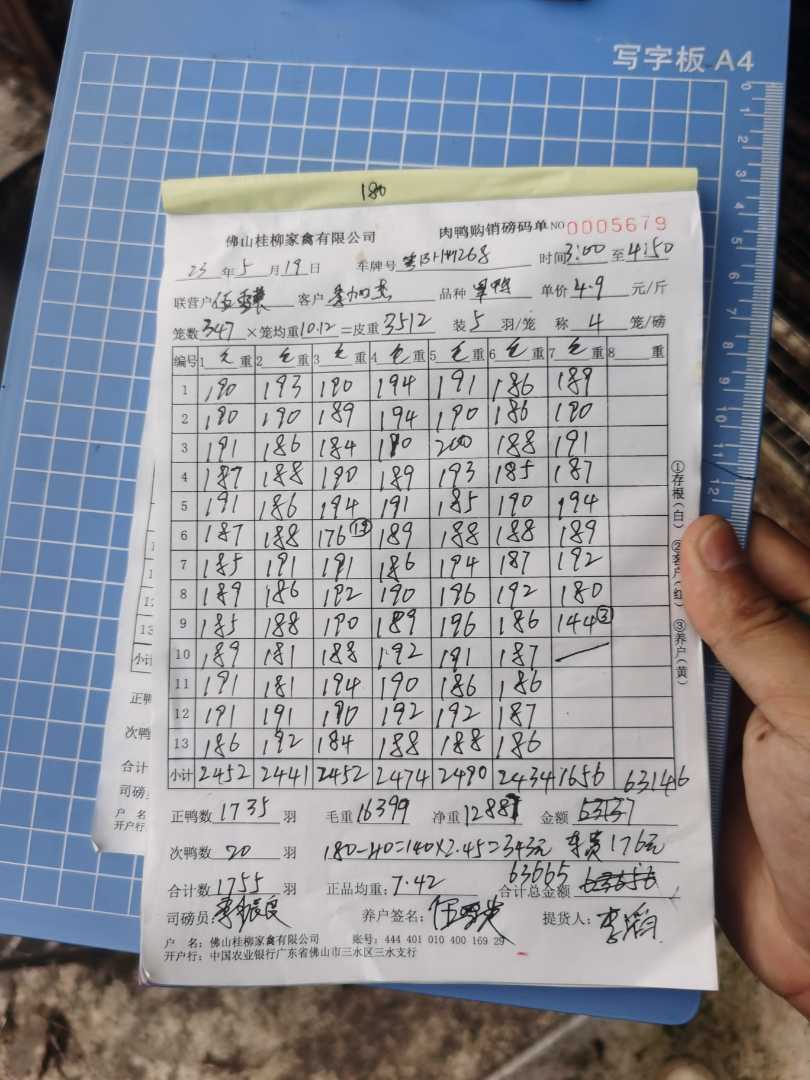 写字板 A4
180
佛山桂柳家禽有限公司 肉鸭购销磅码单 NO 0005679
23 年 5 月 19 日 车牌号 268 时间 3:00 至 4:50
联营户 客户 品种 单价 4.9 元/斤
笼数 347 ×笼均重 10.12 =皮重 3512 装 5 羽/笼 称 4 笼/磅
编号 1 毛 重 2 毛 重 3 毛 重 4 毛 重 5 毛 重 6 毛 重 7 毛 重 8 重
1 190 193 190 194 191 186 189
2 190 190 189 194 190 186 190
3 191 186 184 190 200 188 191
4 187 188 190 189 193 185 187
5 191 186 194 191 185 190 194
6 187 188 176 189 188 188 189
7 185 191 191 186 194 187 192
8 189 186 192 190 196 192 180
9 185 188 190 189 196 186 144 ③
10 189 181 188 192 191 187
11 191 181 194 190 186 186
12 191 191 190 192 192 187
13 186 192 184 188 188 186
小计 2452 2441 2452 2474 2490 2434 1656 63146
正鸭数 1735 羽 毛重 16399 净重 12887 金额
次鸭数 20 羽 180-40=140×2.45=343元 车费176元
合计数 1755 羽 正品均重: 7.42 合计总金额 63665
司磅员: 养户签名: 提货人:
户 名: 佛山桂柳家禽有限公司 账号: 444 401 010 400 169 29
开户行: 中国农业银行广东省佛山市三水区三水支行
①存根(白) ②客户(红) ③养户(黄)
0 1 2 3 4 5 6 7 8 9 10 11 12
13
小计
正鸭
次鸭
合计
司磅员
户 名
开户行